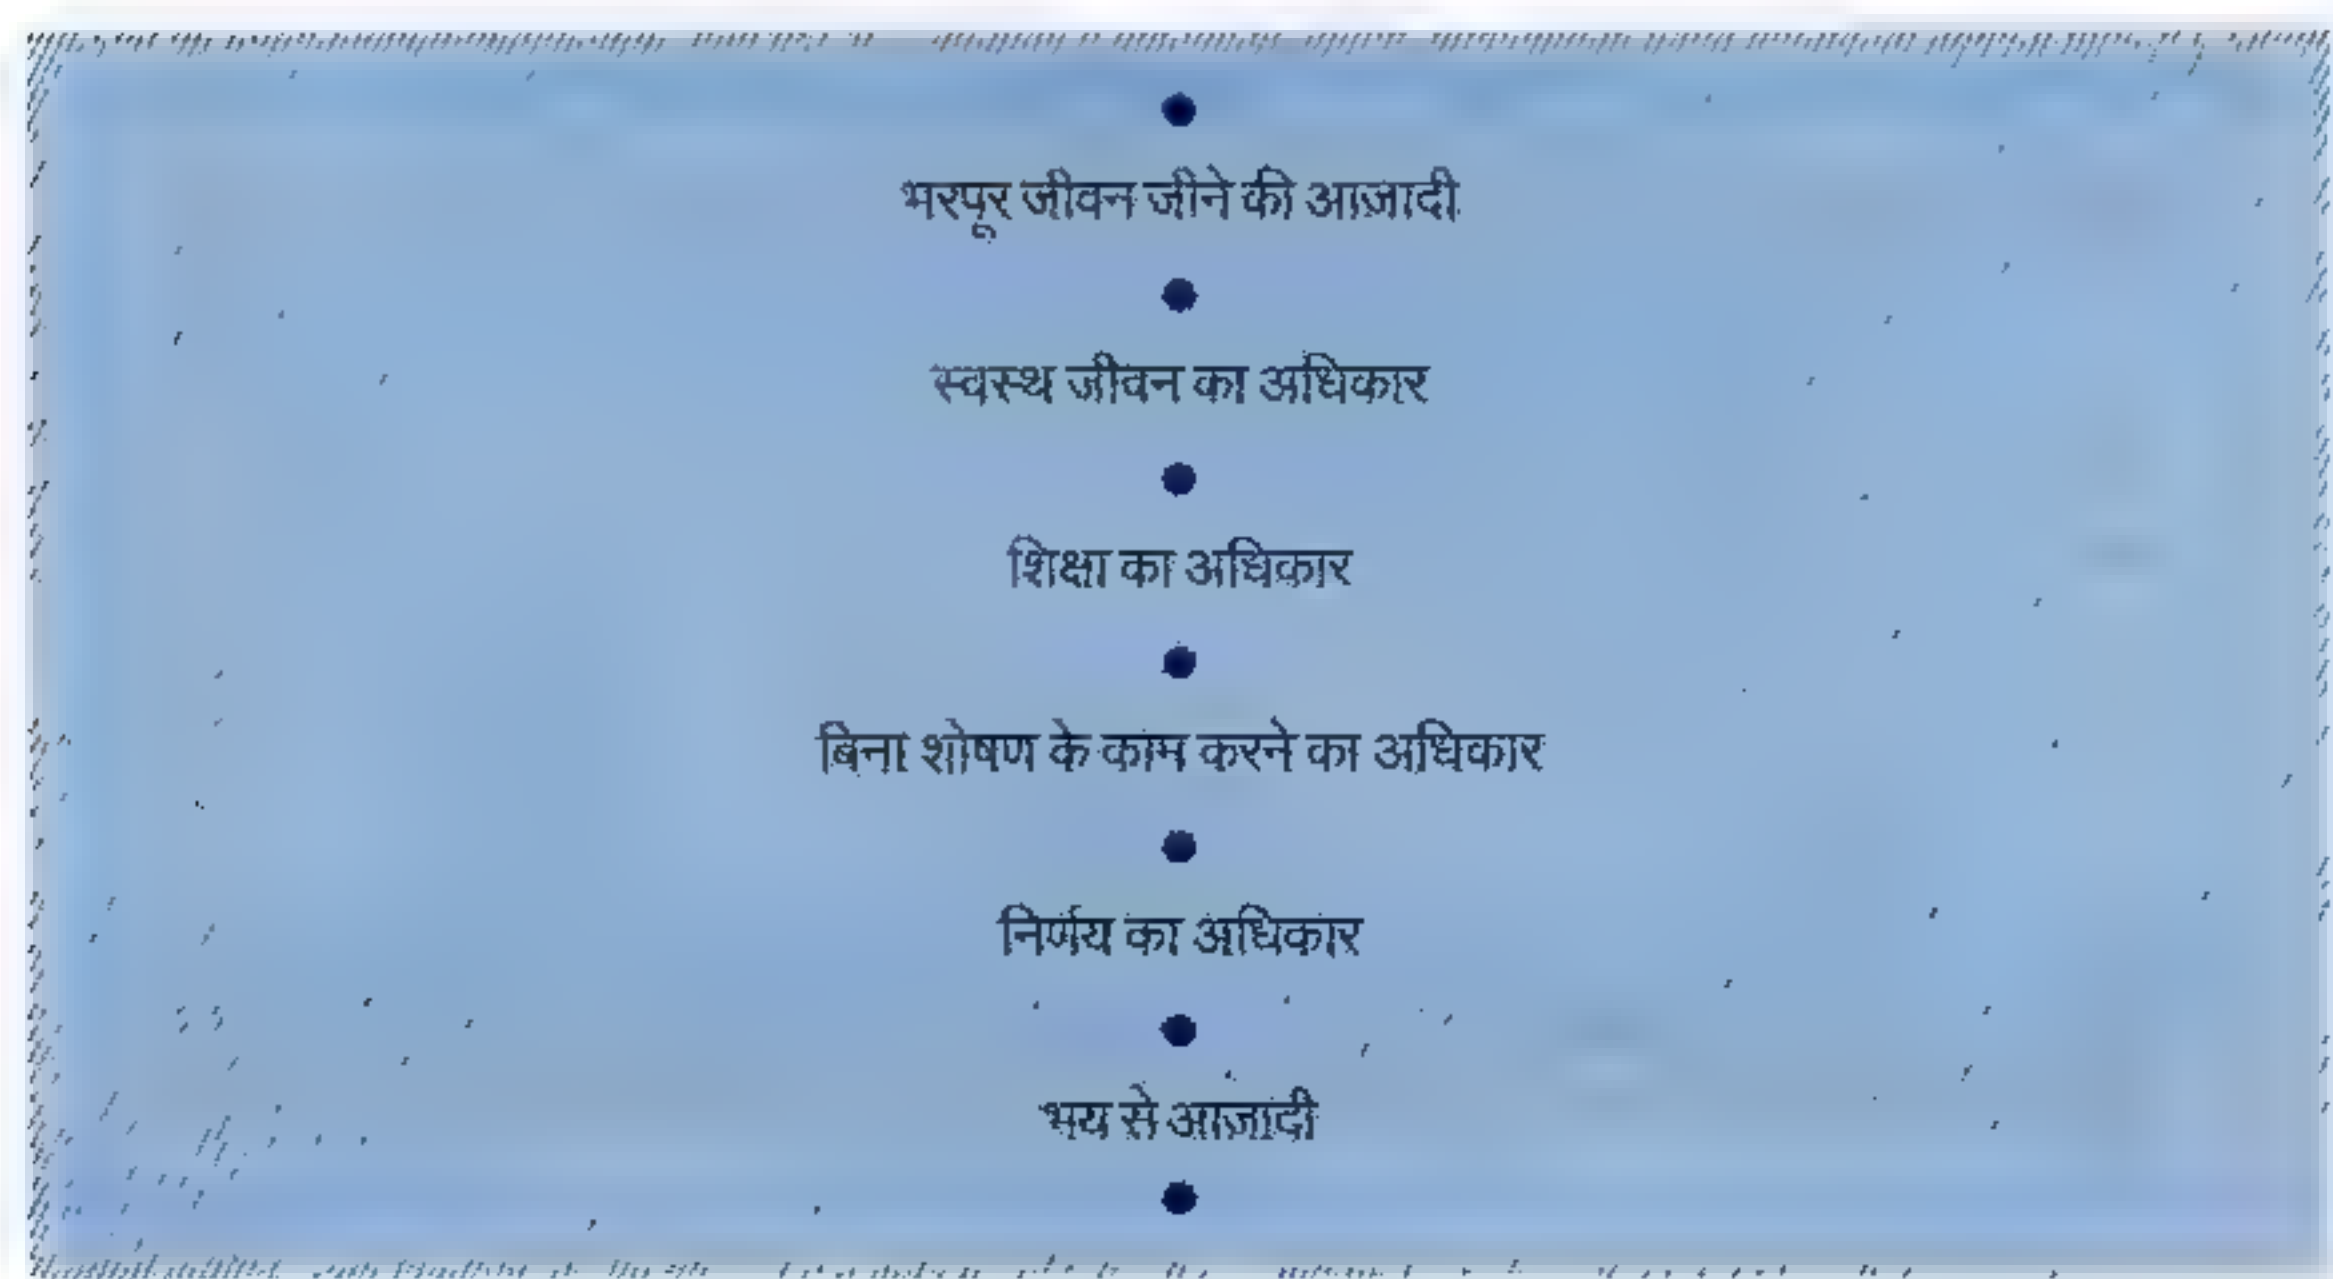 ●
भरपूर जीवन जीने की आज़ादी
●
स्वस्थ जीवन का अधिकार
●
शिक्षा का अधिकार
●
बिना शोषण के काम करने का अधिकार
●
निर्णय का अधिकार
●
भय से आज़ादी
●